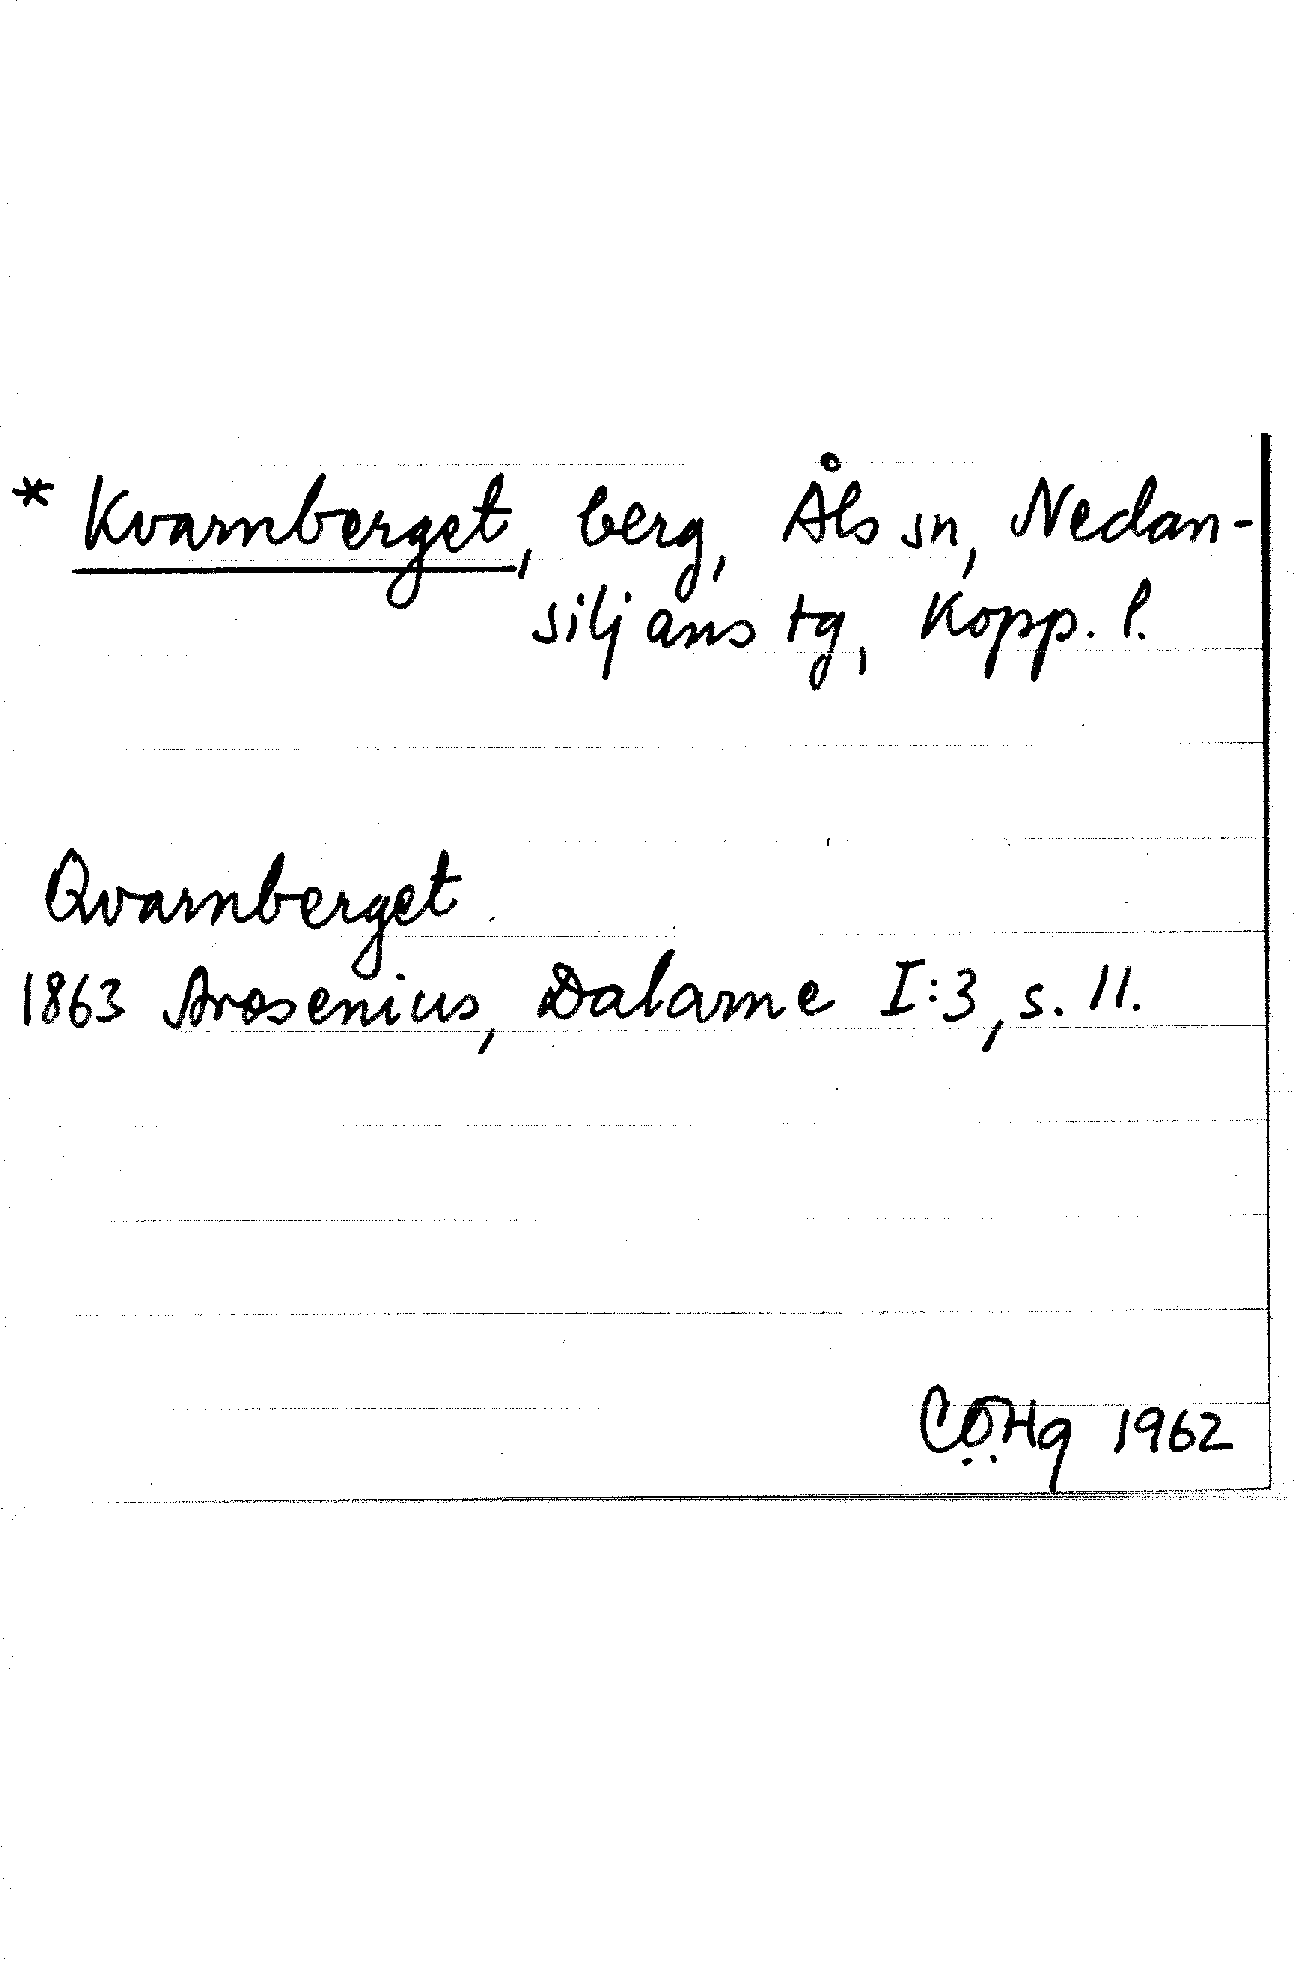 * Kvarnberget, berg, Åls sn, Nedan-
siljans tg, Kopp. l.
Qvarnberget
1863 Arosenius, Dalarne I:3, s. 11.
CÖHg 1962